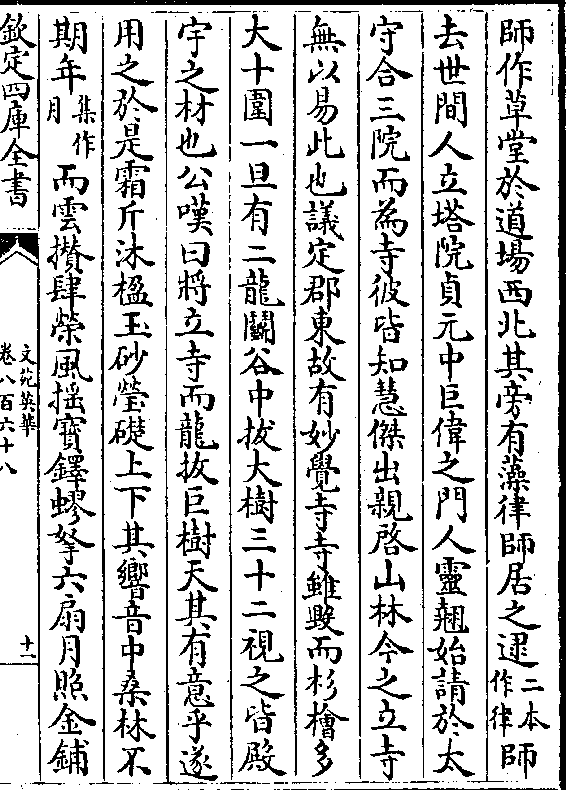 師作草堂於道場西北其旁有藻律師居之逮二本作律師
去世間人立塔院貞元中巨偉之門人靈翹始請於太
守合三院而為寺彼皆知慧傑出親啓山林今之立寺
無以易此也議定郡東故有妙覺寺寺雖毀而杉檜多
大十圍一旦有二龍鬭谷中拔大樹三十二視之皆殿
宇之材也公嘆曰將立寺而龍拔巨樹天其有意乎遂
用之於是霜斤沐楹玉砂瑩礎上下其響音中桑林不
期年集作月而雲攅肆榮風揺寳鐸蟉拏六扇月照金鋪
欽定四庫全書
文苑英華
卷八百六十八
十一